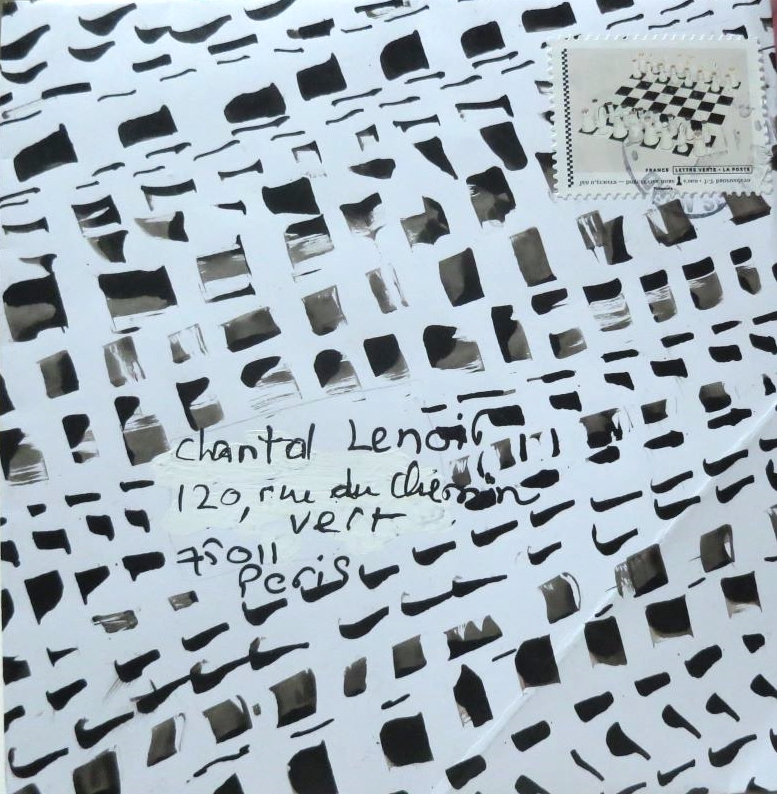 FRANCE LETTRE VERTE - LA POSTE
Chantal Lenoir
120, rue du Chemin
vert
75011
Paris